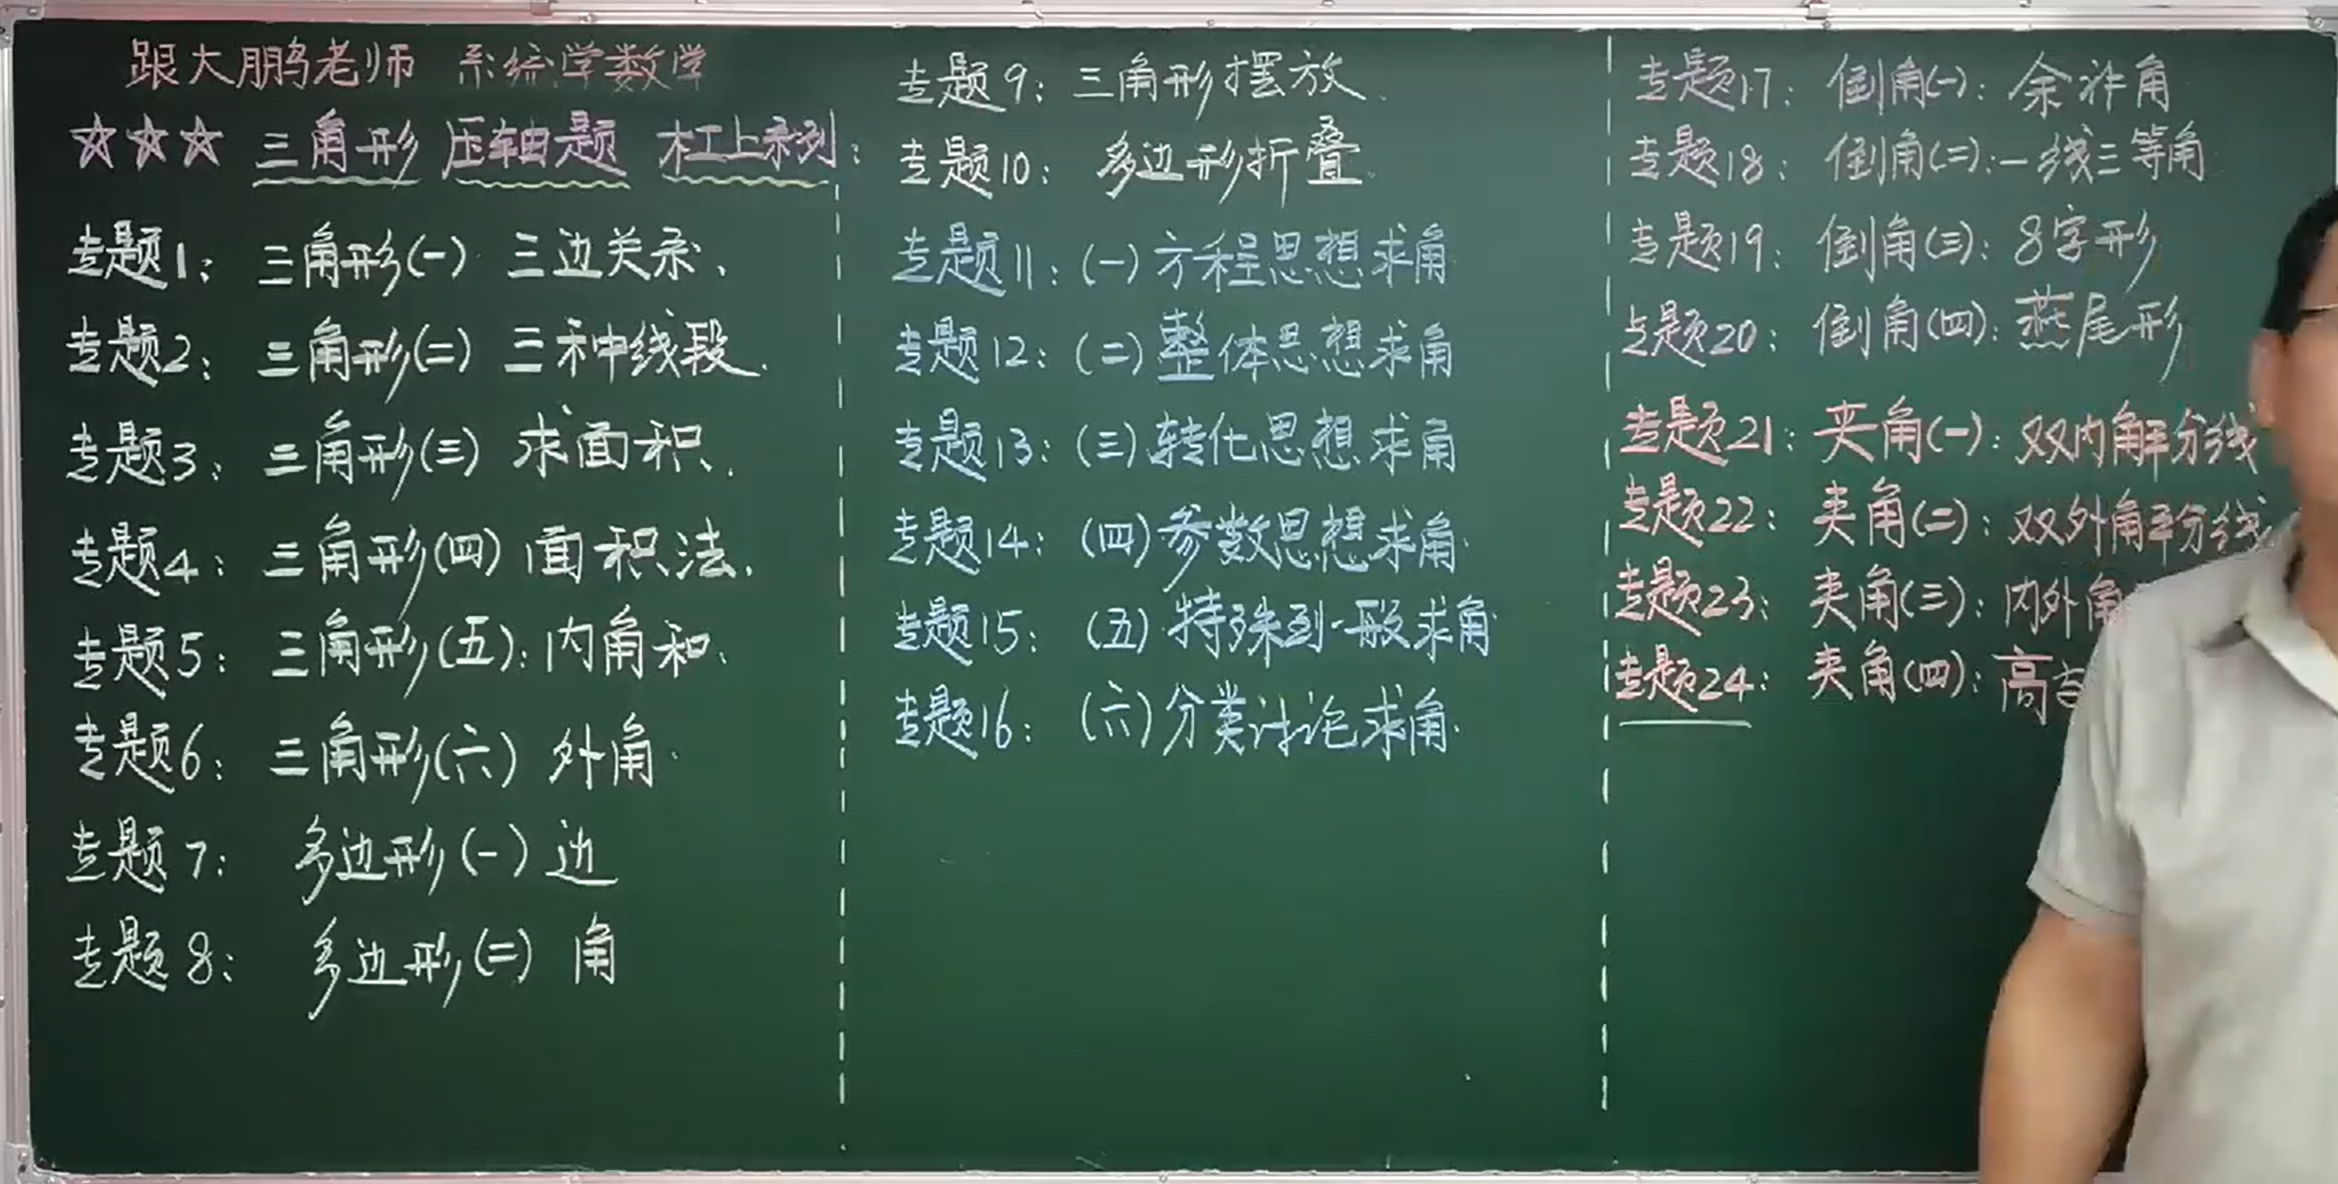 跟大鹏老师 系统学数学
☆☆☆ 三角形 压轴题 杠上系列:
专题1: 三角形(一) 三边关系.
专题2: 三角形(二) 三种线段.
专题3: 三角形(三) 求面积.
专题4: 三角形(四) 面积法.
专题5: 三角形(五): 内角和.
专题6: 三角形(六) 外角.
专题7: 多边形(一) 边
专题8: 多边形(二) 角
专题9: 三角形摆放.
专题10: 多边形折叠.
专题11: (一)方程思想求角
专题12: (二)整体思想求角
专题13: (三)转化思想求角
专题14: (四)参数思想求角.
专题15: (五)特殊到一般求角
专题16: (六)分类讨论求角.
专题17: 倒角(一): 余补角
专题18: 倒角(二): 一线三等角
专题19: 倒角(三): 8字形
专题20: 倒角(四): 燕尾形
专题21: 夹角(一): 双内角平分线
专题22: 夹角(二): 双外角平分线
专题23: 夹角(三): 内外角
专题24: 夹角(四): 高